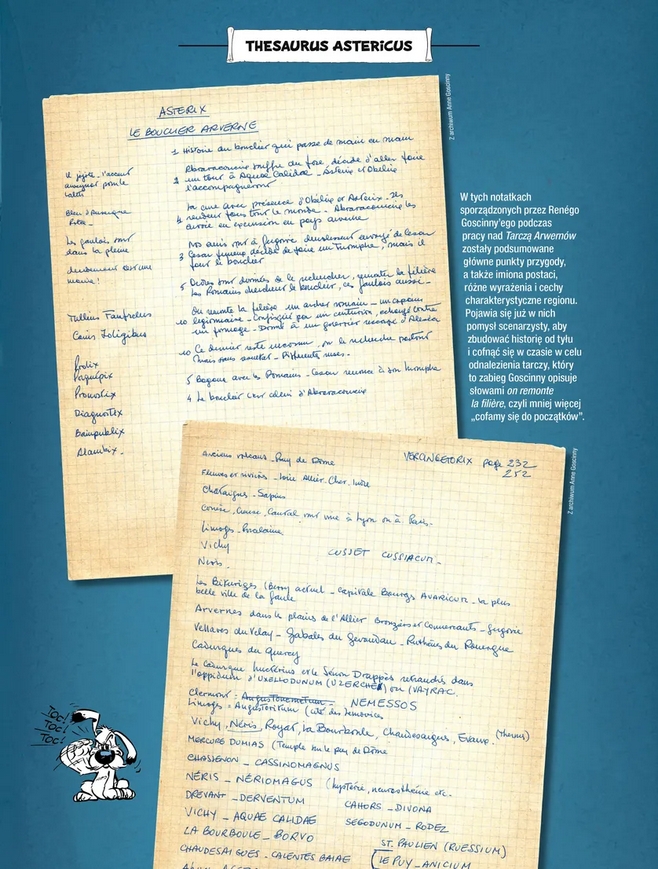 THESAURUS ASTERICUS
Z archiwum Anne Goscinny
ASTERIX
LE BOUCLIER ARVERNE
1 Histoire du bouclier qui passe de main en main
Abraracourcix souffre du foie, décide d'aller faire
un tour à Aquae Calidae - Astérix et Obélix
l'accompagneront
La cure avec présence d'Obélix et Astérix. Ils
rendent fous tout le monde - Abraracourcix les
envoie en excursion en pays arverne
Nos amis sont à Gergovie
3 César décide de faire un triomphe, mais il
faut le bouclier
5 Ordres sont donnés de le rechercher, remonter la filière
Les Romains cherchent le bouclier, les gaulois aussi -
On remonte la filière un archer romain -
10 légionnaire - Confisqué par un centurion, échangé contre
- Donné à un guerrier rescapé d'Alésia
10 Ce dernier reste inconnu, on le recherche partout
mais sans succès - Différentes ruses -
5 Bagarre avec les Romains - César renonce à son triomphe
4 Le bouclier était celui d'Abraracourcix
l'accent
Les gaulois sont
dans la plaine
Tullius Fanfrelus
Caius Joligibus
Prolix
Pronostix
Diagnostix
Bainpublix
Alambix -
W tych notatkach
sporządzonych przez Renégo
Goscinny'ego podczas
pracy nad Tarczą Arwernów
zostały podsumowane
główne punkty przygody,
a także imiona postaci,
różne wyrażenia i cechy
charakterystyczne regionu.
Pojawia się już w nich
pomysł scenarzysty, aby
zbudować historię od tyłu
i cofnąć się w czasie w celu
odnalezienia tarczy, który
to zabieg Goscinny opisuje
słowami on remonte
la filière, czyli mniej więcej
„cofamy się do początków”.
Z archiwum Anne Goscinny
Anciens volcans - Puy de Dôme
VERCINGETORIX page 232
252
Fleuves et rivières - Loire Allier, Cher, Indre
Châtaignes - Sapins
Corrèze, Creuse, Cantal vont vivre à Lyon ou à Paris -
Limoges - Porcelaine
Vichy
CUSSET CUSSIACUM -
Néris -
Les Bituriges (Berry) actuel - capitale Bourges AVARICUM - la plus
belle ville de la Gaule
Arvernes dans les plaines de l'Allier Bronziers et Commerçants - Gergovie
Vellaves du Velay - Gabales du Gévaudan - Ruthènes du Rouergue
Cadurques du Quercy
Le Cadurque Luctérius et le Sénon Drappès retranchés dans
l'oppidum d'UXELLODUNUM (UZERCHE) ou (VAYRAC.
Clermont : Augustonemetum - NEMESSOS
Limoges - Augustoritum (cité des Lemovices
Vichy, Néris, Royat, La Bourboule, Chaudesaigues, Evaux. (Thermes)
MERCURE DUMIAS (Temple sur le puy de Dôme
CHASSENON - CASSINOMAGNUS
NÉRIS - NÉRIOMAGUS (hystérie, neurasthénie etc -
DREVANT - DERVENTUM
CAHORS - DIVONA
VICHY - AQUAE CALIDAE
SEGODUNUM - RODEZ
LA BOURBOULE - BORVO
ST. PAULIEN (RUESSIUM)
CHAUDESAIGUES - CALENTES BAIAE
(LE PUY - ANICIUM
TOC!
TOC!
TOC!